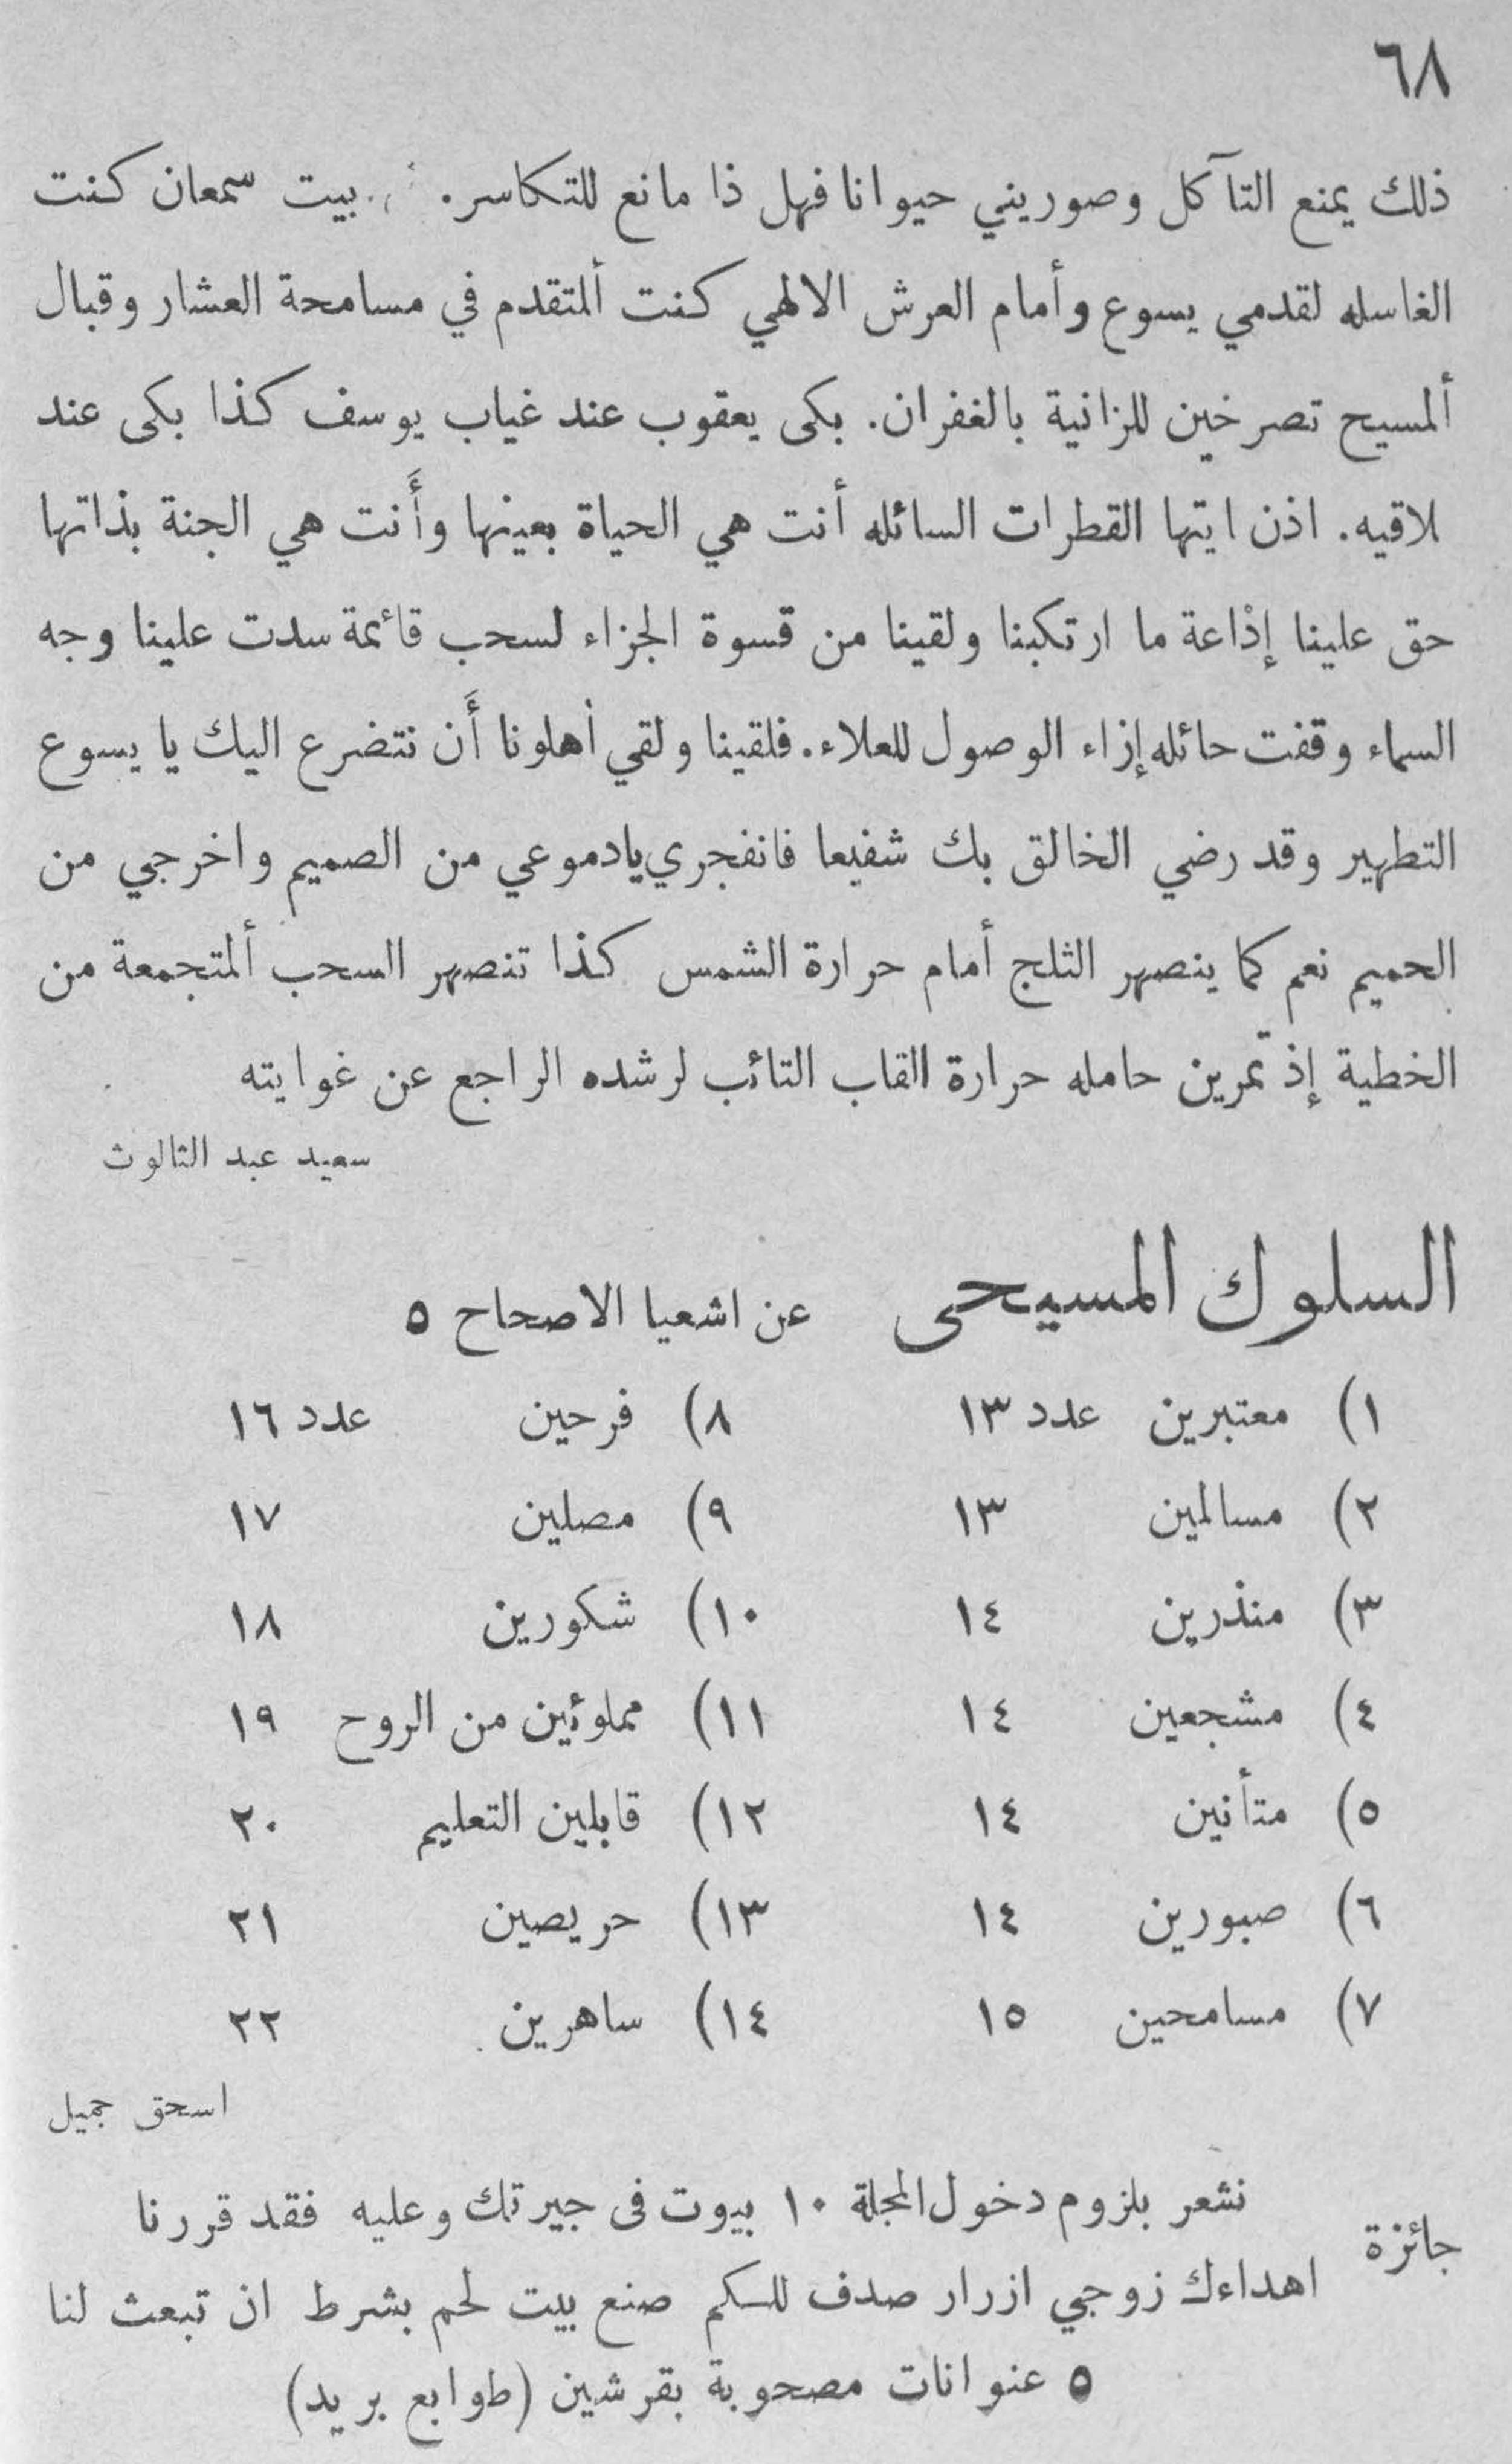 ٦٨
ذلك يمنع التآكل وصوريني حيوانا فهل ذا مانع للتكاسر. بيت سمعان كنت
الغاسله لقدمي يسوع وأمام العرش الالهي كنت ألمتقدم في مسامحة العشار وقبال
ألمسيح تصرخين للزانية بالغفران. بكى يعقوب عند غياب يوسف كذا بكى عند
لاقيه. اذن ايتها القطرات السائله أنت هي الحياة بعينها وأَنت هي الجنة بذاتها
حق علينا إذاعة ما ارتكبنا ولقينا من قسوة الجزاء لسحب قائمة سدت علينا وجه
السماء وقفت حائله إزاء الوصول للعلاء. فلقينا ولقي أهلونا أَن نتضرع اليك يا يسوع
التطهير وقد رضي الخالق بك شفيعا فانفجري يادموعي من الصميم واخرجي من
الحميم نعم كما ينصهر الثلج أمام حرارة الشمس كذا تنصهر السحب ألمتجمعة من
الخطية إذ تمرين حامله حرارة القاب التائب لرشده الراجع عن غوايته
سعيد عبد الثالوث
السلوك المسيحى عن اشعيا الاصحاح ٥
١) معتبرين عدد ١٣ ٨) فرحين عدد ١٦
٢) مسالمين ١٣ ٩) مصلين ١٧
٣) منذرين ١٤ ١٠) شكورين ١٨
٤) مشجعين ١٤ ١١) مملوئين من الروح ١٩
٥) متأنين ١٤ ١٢) قابلين التعليم ٢٠
٦) صبورين ١٤ ١٣) حريصين ٢١
٧) مسامحين ١٥ ١٤) ساهرين ٢٢
اسحق جميل
نشعر بلزوم دخول المجلة ١٠ بيوت فى جيرتك وعليه فقد قررنا
جائزة اهداءك زوجي ازرار صدف للسكم صنع بيت لحم بشرط ان تبعث لنا
٥ عنوانات مصحوبة بقرشين (طوابع بريد)